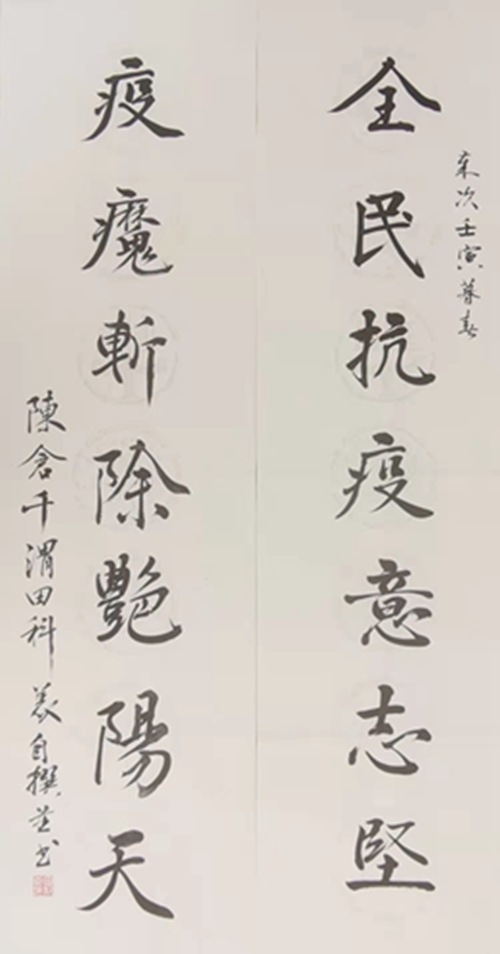 歲次壬寅暮春
全民抗疫意志堅
疫魔斬除艷陽天
陳倉千渭田科自撰並书